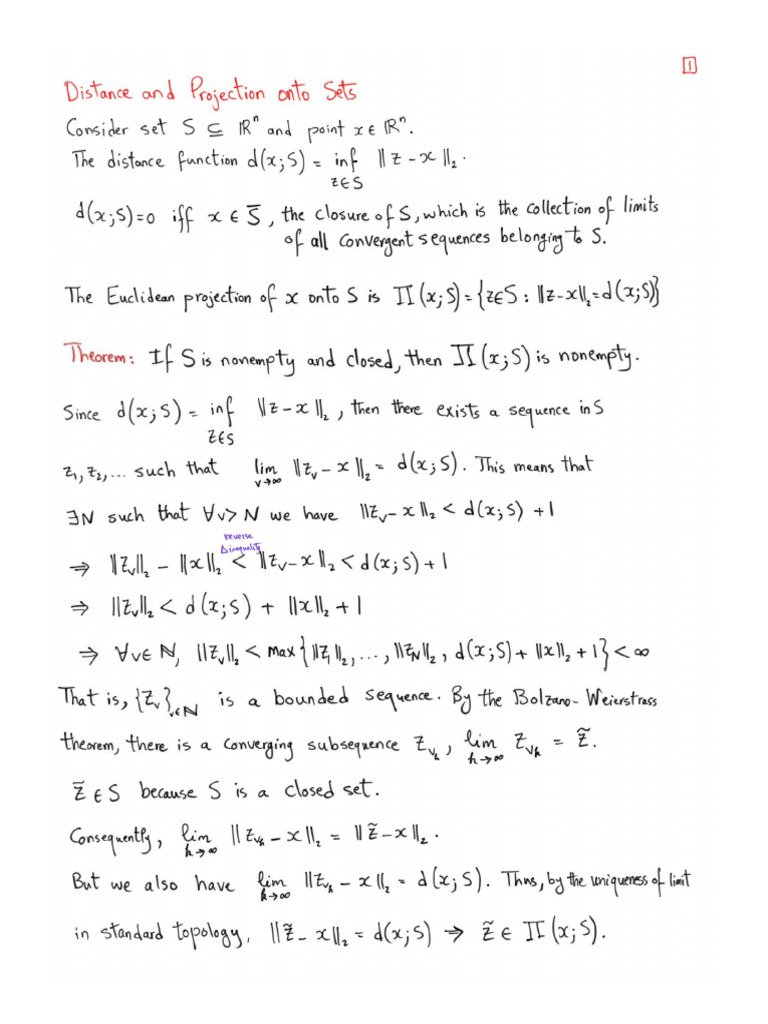 1
Distance and Projection onto Sets
Consider set S ⊆ ℝⁿ and point x ∈ ℝⁿ.
The distance function d(x;S) = inf_{z∈S} ‖z − x‖₂.
d(x;S)=0 iff x ∈ S̄, the closure of S, which is the collection of limits
of all convergent sequences belonging to S.
The Euclidean projection of x onto S is Π(x;S) = {z∈S : ‖z−x‖₂ = d(x;S)}
Theorem: If S is nonempty and closed, then Π(x;S) is nonempty.
Since d(x;S) = inf_{z∈S} ‖z − x‖₂, then there exists a sequence in S
z₁, z₂, ... such that lim_{ν→∞} ‖z_ν − x‖₂ = d(x;S). This means that
∃N such that ∀ν > N we have ‖z_ν − x‖₂ < d(x;S) + 1
reverse
Δ inequality
⇒ ‖z_ν‖₂ − ‖x‖₂ < ‖z_ν − x‖₂ < d(x;S) + 1
⇒ ‖z_ν‖₂ < d(x;S) + ‖x‖₂ + 1
⇒ ∀ν∈ℕ, ‖z_ν‖₂ < max{‖z₁‖₂, ..., ‖z_N‖₂, d(x;S) + ‖x‖₂ + 1} < ∞
That is, {z_ν}_{ν∈ℕ} is a bounded sequence. By the Bolzano-Weierstrass
theorem, there is a converging subsequence z_{ν_k}, lim_{k→∞} z_{ν_k} = z̃.
z̃ ∈ S because S is a closed set.
Consequently, lim_{k→∞} ‖z_{ν_k} − x‖₂ = ‖z̃ − x‖₂.
But we also have lim_{k→∞} ‖z_{ν_k} − x‖₂ = d(x;S). Thus, by the uniqueness of limit
in standard topology, ‖z̃ − x‖₂ = d(x;S) → z̃ ∈ Π(x;S).